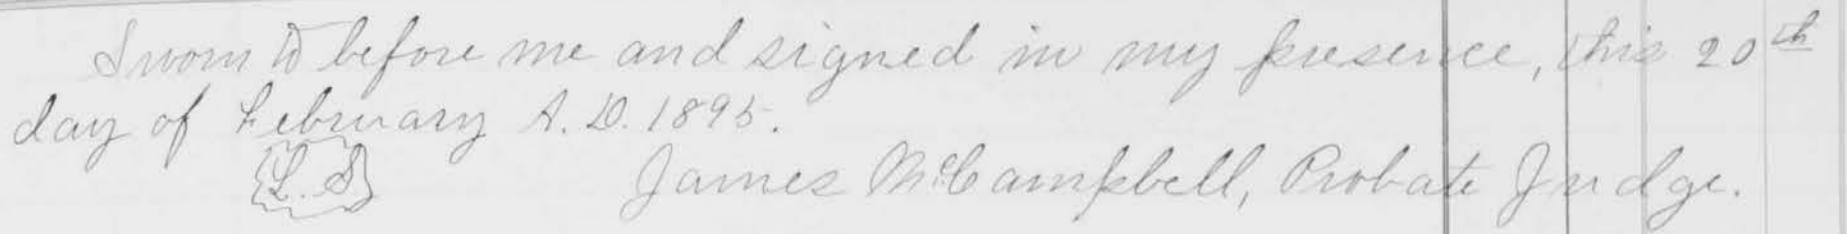 Sworn to before me and signed in my presence, this 20th
day of February A.D. 1895.
L.S
James McCampbell, Probate Judge.